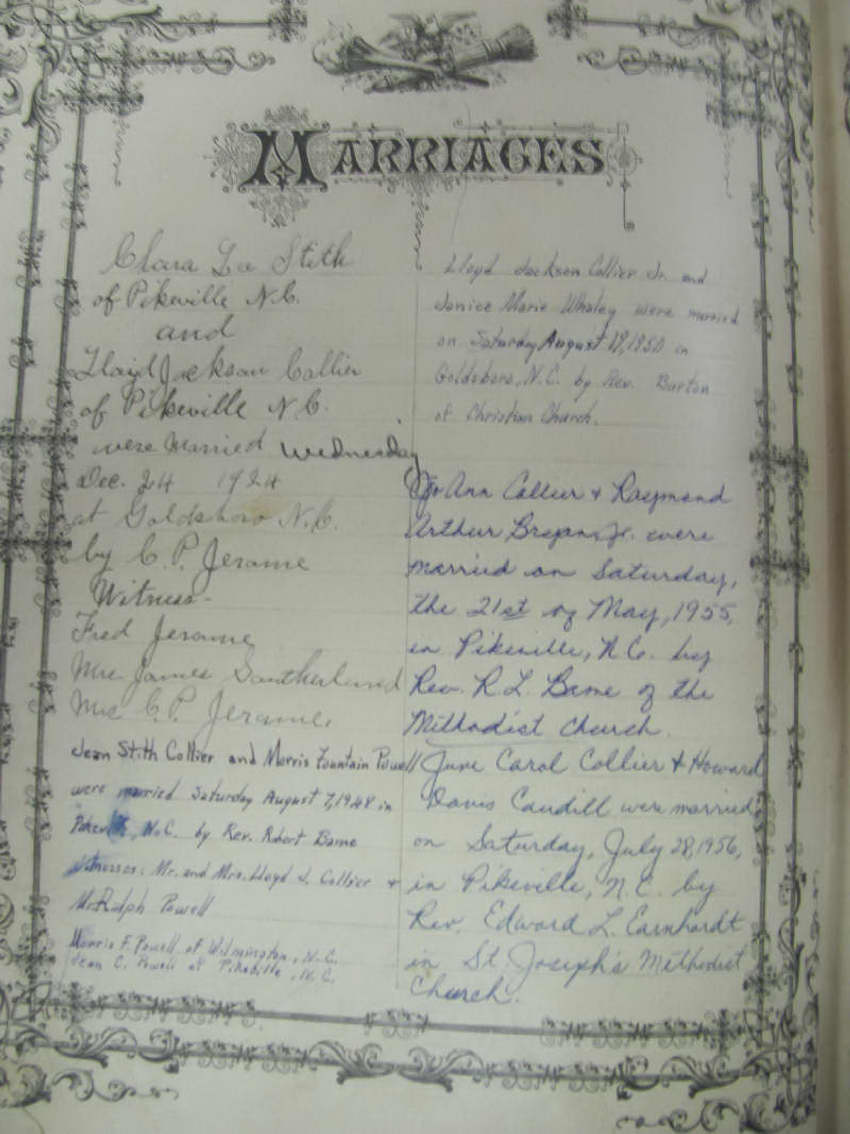 MARRIAGES
Clara La Stith
of Pikeville N.C.
and
Lloyd Jackson Collier
of Pikeville N.C.
were married Wednesday
Dec. 24 1924
at Goldsboro N.C.
by C.P. Jerome
Witness-
Fred Jerome
Mrs James Southerland
Mrs C.P. Jerome.
Jean Stith Collier and Morris Fountain Powell
were married Saturday August 7, 1948 in
Pikeville, N.C. by Rev. Robert Bame
Witnesses: Mr. and Mrs. Lloyd J. Collier +
Mr. Ralph Powell
Morris F. Powell of Wilmington, N.C.
Jean C. Powell of Pikeville, N.C.
Lloyd Jackson Collier Jr. and
Janice Marie Whaley were married
on Saturday August 19, 1950 in
Goldsboro, N.C. by Rev. Barton
of Christian Church.
Jo Ann Collier + Raymond
Arthur Jr. were
married on Saturday,
the 21st of May, 1955,
in Pikeville, N.C. by
Rev. R.L. Bame of the
Methodist Church.
June Carol Collier + Howard
Davis Caudill were married
on Saturday, July 28, 1956,
in Pikeville, N.C. by
Rev. Edward L. Earnhardt
in St. Joseph's Methodist
Church.